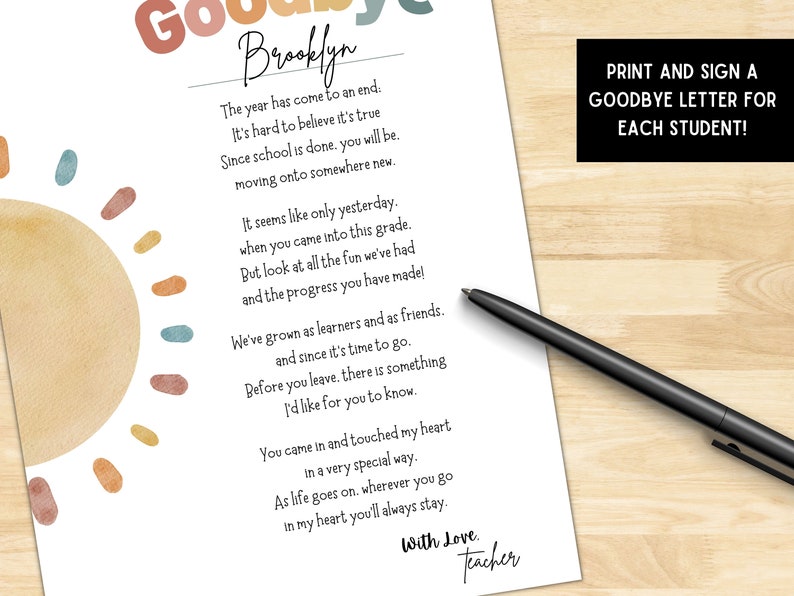 Goodbye
Brooklyn
The year has come to an end;
It's hard to believe it's true
Since school is done, you will be,
moving onto somewhere new.
It seems like only yesterday,
when you came into this grade.
But look at all the fun we've had
and the progress you have made!
We've grown as learners and as friends,
and since it's time to go.
Before you leave, there is something
I'd like for you to know.
You came in and touched my heart
in a very special way.
As life goes on, wherever you go
in my heart you'll always stay.
With Love,
Teacher
PRINT AND SIGN A
GOODBYE LETTER FOR
EACH STUDENT!